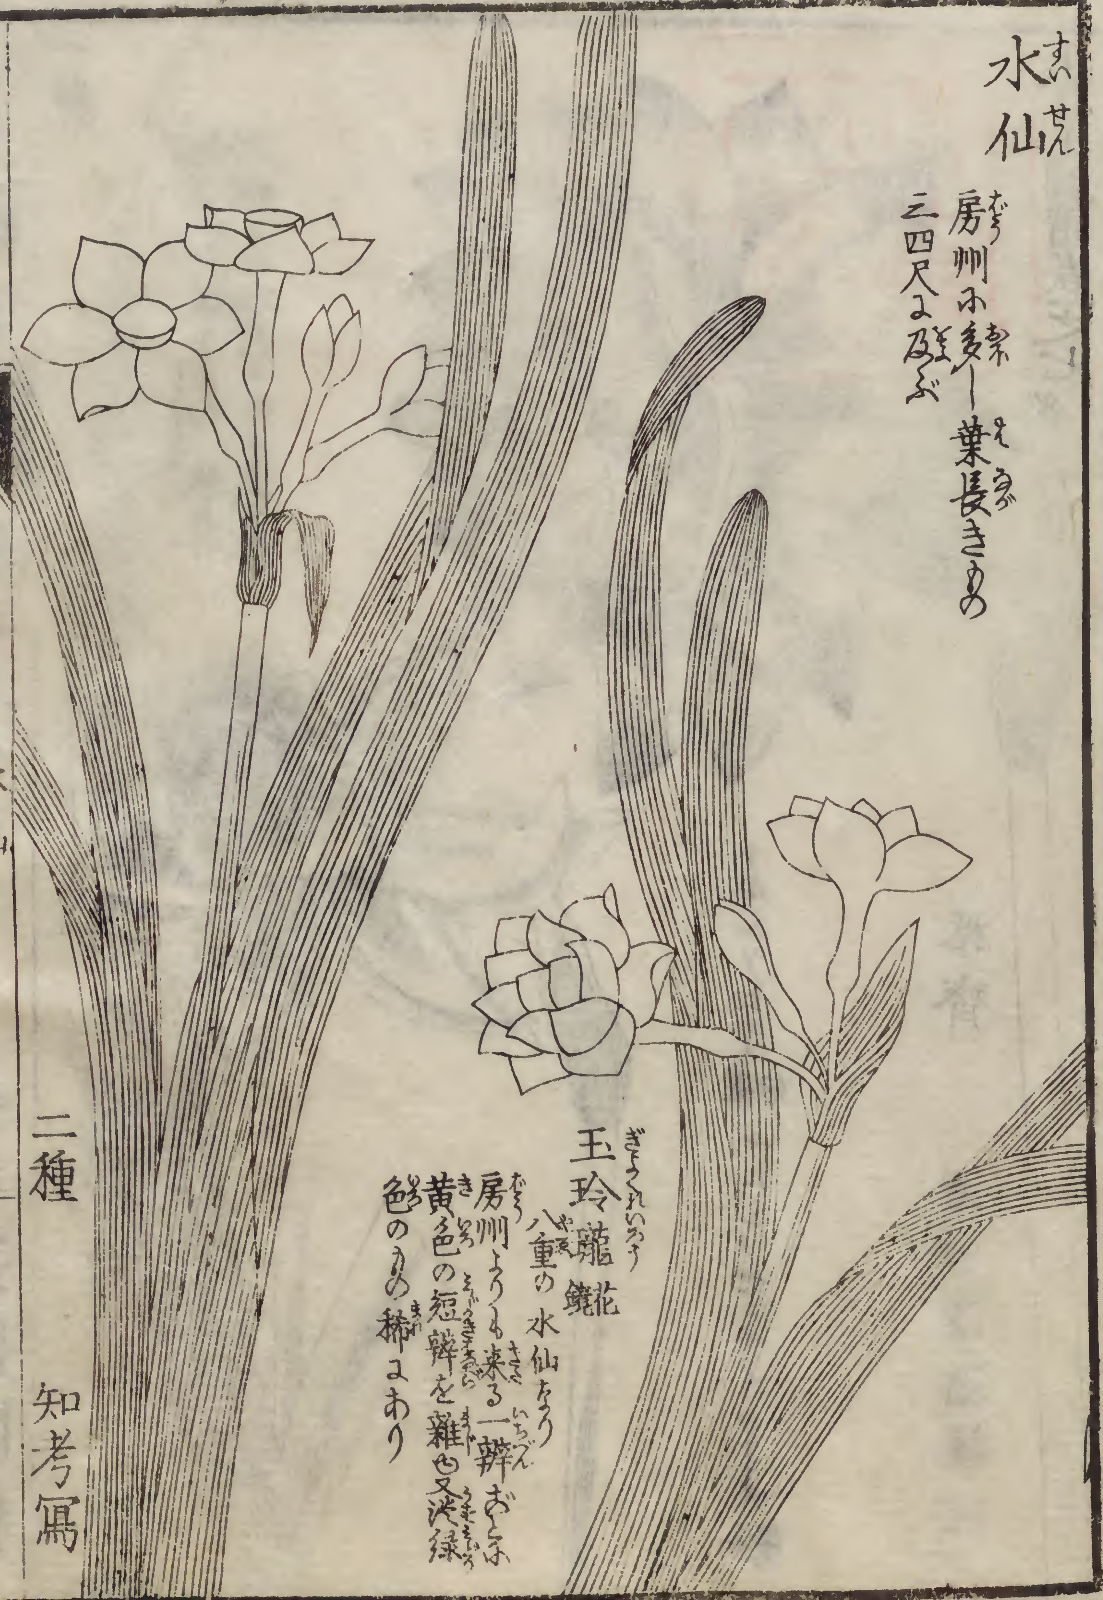 水仙
すいせん
房州に多し葉長きもの
三四尺に及ぶ
玉玲瓏花鏡
ぎよくれいろう
八重の水仙なり
房州よりも来る一辨ごとに
黄色の短辨を雜ゆ又淡緑
色のもの稀にあり
二種
知考寫